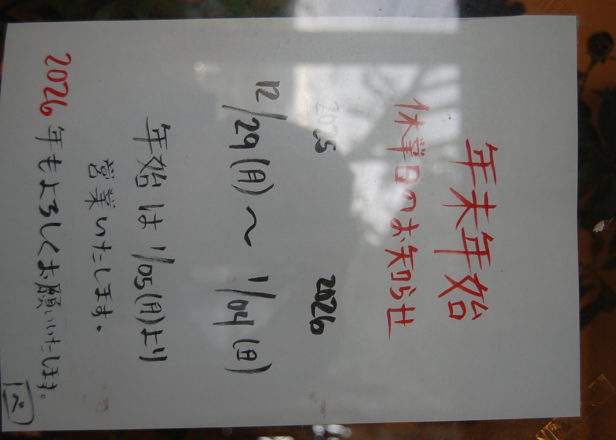 年末年始
休業日のお知らせ
2025 2026
12/29(月)～1/04(日)
年始は1/05(月)より
営業いたします。
2026年もよろしくお願いいたします。